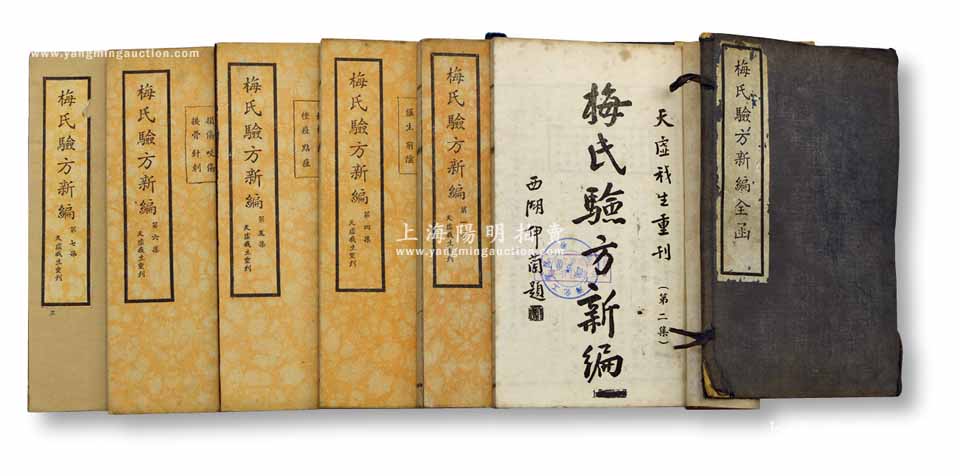 www.yangmingauction.com
梅氏驗方新編全函
天虛我生重刊
（第二集）
梅氏驗方新編
西湖伊蘭題
梅氏驗方新編
第
天虛我生重刊
保生
梅氏驗方新編
第四集
天虛我生重刊
痘症
梅氏驗方新編
第五集
天虛我生重刊
損傷 咬傷
接骨 針刺
梅氏驗方新編
第六集
天虛我生重刊
梅氏驗方新編
第七集
天虛我生重刊
上海陽明拍賣
www.yangmingauction.com